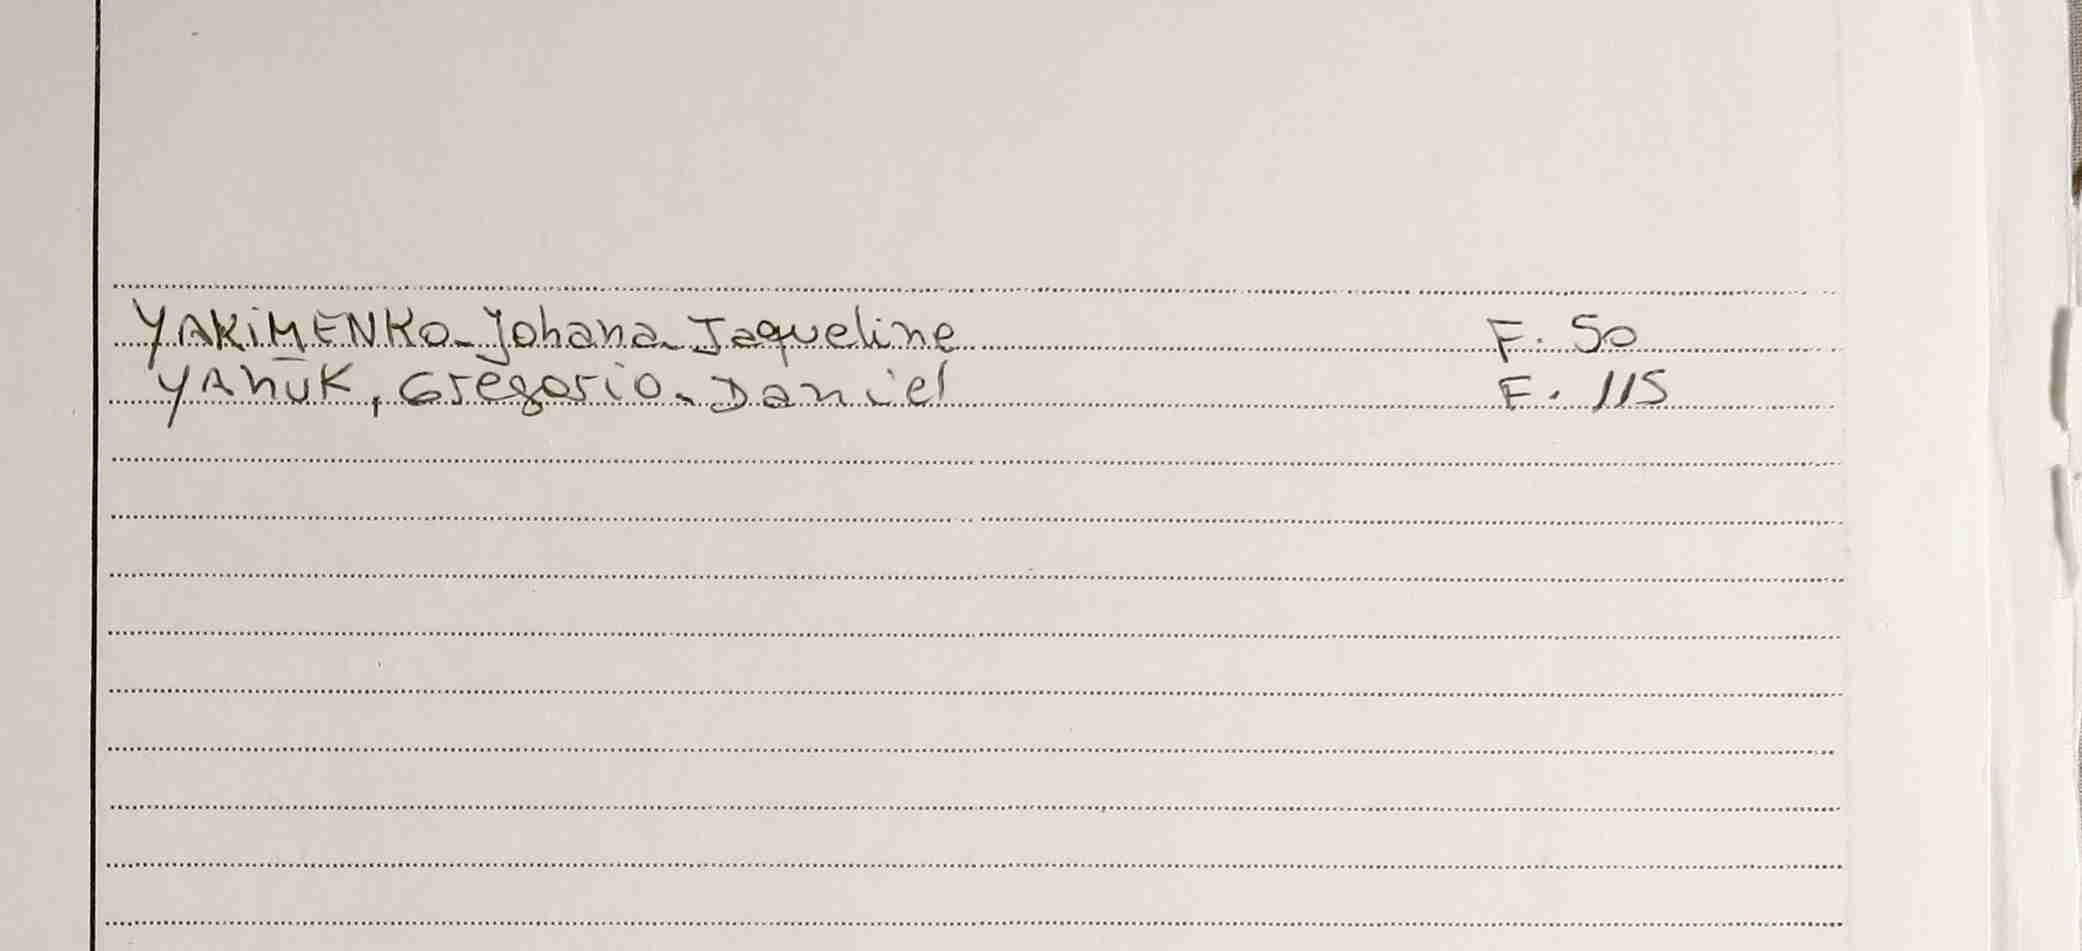 YAKiMENKO Johana Jaqueline F. 50
YAhUK, Gregorio Daniel F. 115